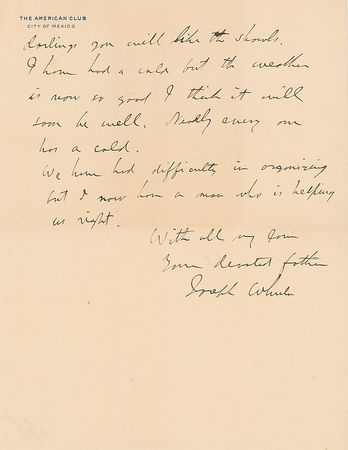 THE AMERICAN CLUB
CITY OF MEXICO
darlings you will like the shawls.
I have had a cold but the weather
is now so good I think it will
soon be well. Nearly every one
has a cold.
We have had difficulty in organizing
but I now have a man who is helping
us right.
With all my love
Your devoted father
Joseph Wheeler